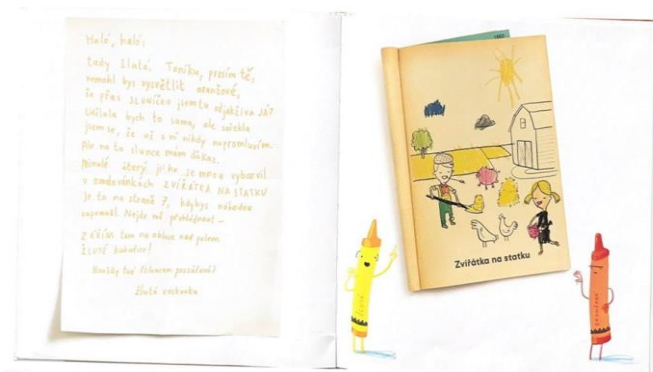 Haló, haló:
tady žlutá. Toníku, prosím tě,
nemohl bys vysvětlit oranžové,
že přes sluníčko jsem tu odjakživa JÁ?
Udělala bych to sama, ale zařekla
jsem se, že už s ní nikdy nepromluvím.
Ale na to slunce mám důkaz.
Minulé úterý jsi ho se mnou vybarvil
v omalovánkách ZVÍŘÁTKA NA STATKU
je to na straně 7, kdybys náhodou
zapomněl. Nejde mě přehlédnout —
Zářím tam na obloze nad polem
ŽLUTÉ kukuřice!
Navždy tvá sluncem
Žlutá voskovka
Zvířátka na statku
ŽLUTÁ
ORANŽOVÁ